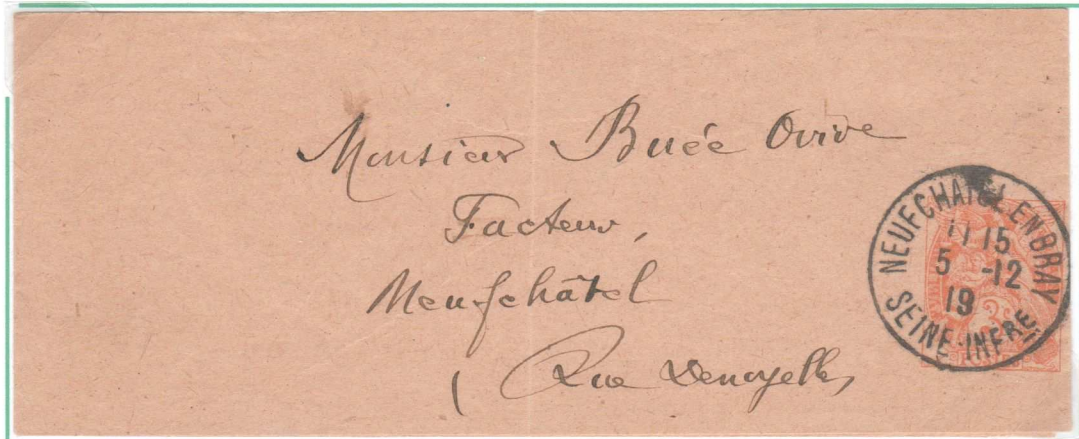 Monsieur Buée Ovide
Facteur,
Neufchâtel
( Rue Denoyelle
NEUFCHATEL EN BRAY
17 15
5 -12
19
SEINE-INFRE